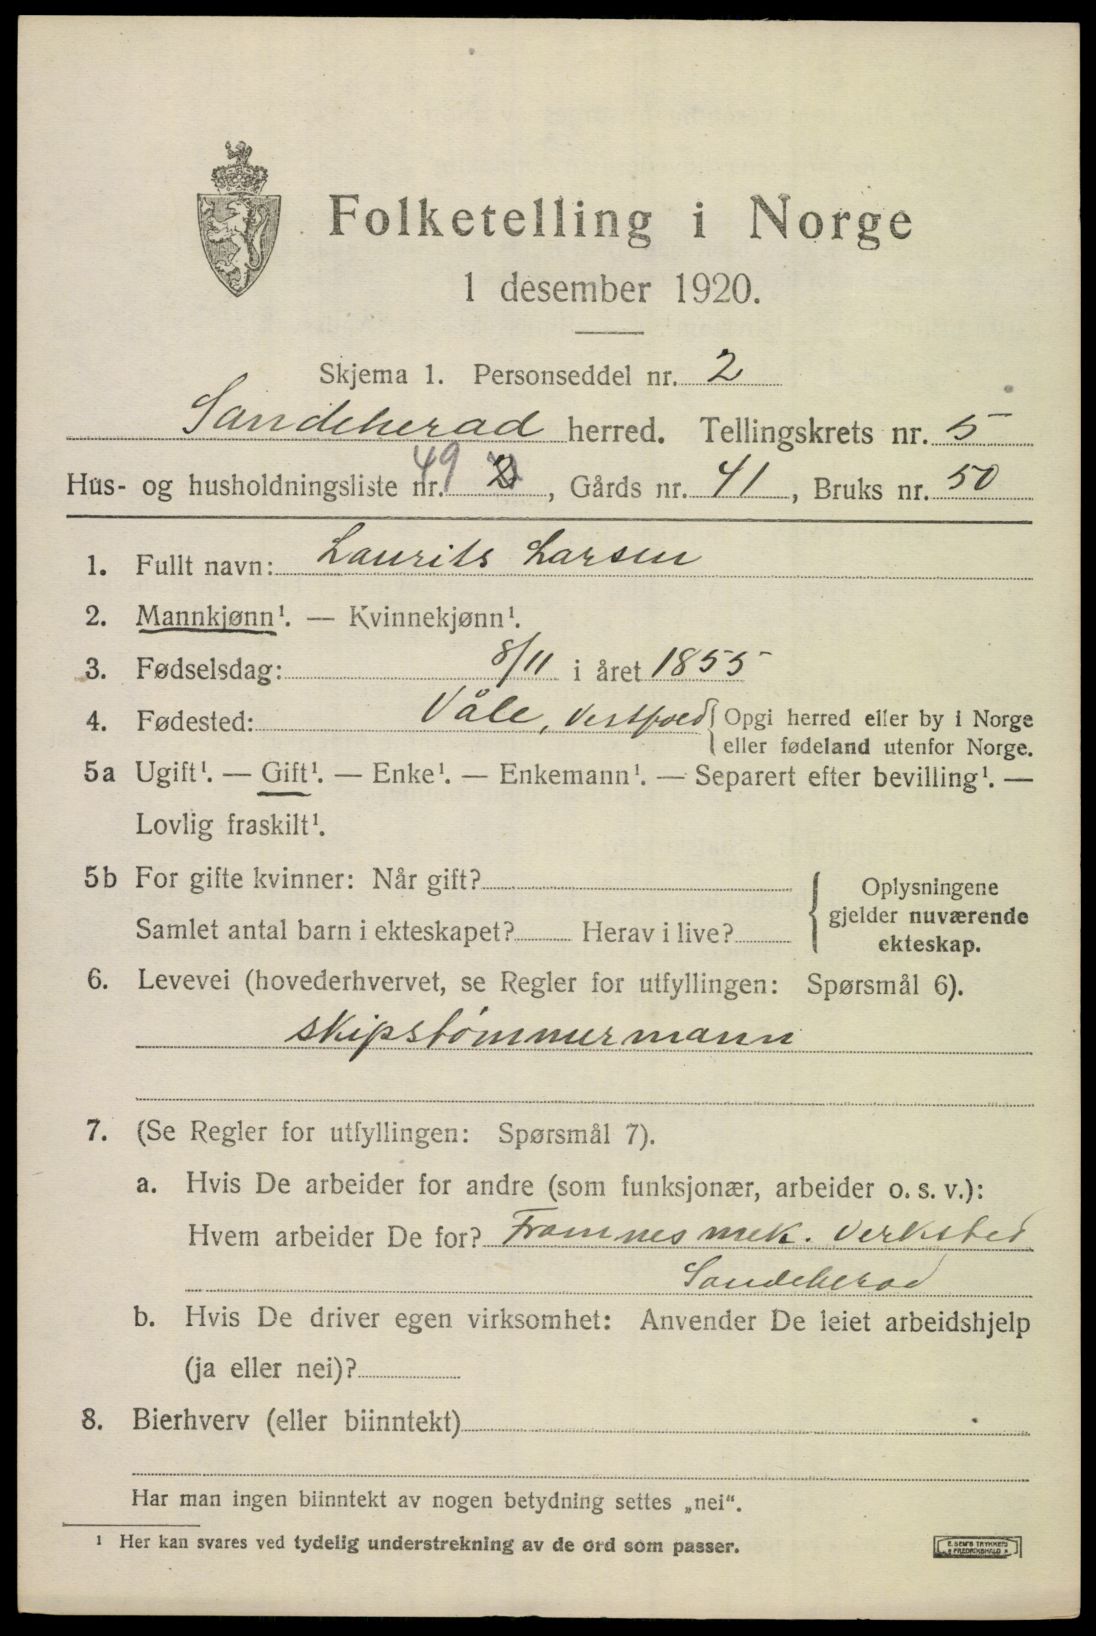 Folketelling i Norge
1 desember 1920.
Skjema 1. Personseddel nr. 2
Sandeherad herred. Tellingskrets nr. 5
Hus- og husholdningsliste nr. 49 2, Gårds nr. 41, Bruks nr. 50
1. Fullt navn: Laurits Larsen
2. Mannkjønn¹. — Kvinnekjønn¹.
3. Fødselsdag: 8/11 i året 1855
4. Fødested: Våle, Vestfold { Opgi herred eller by i Norge
eller fødeland utenfor Norge.
5a Ugift¹. — Gift¹. — Enke¹. — Enkemann¹. — Separert efter bevilling¹. —
Lovlig fraskilt¹.
5b For gifte kvinner: Når gift?
Samlet antal barn i ekteskapet? Herav i live?
Oplysningene
gjelder nuværende
ekteskap.
6. Levevei (hovederhvervet, se Regler for utfyllingen: Spørsmål 6).
skipstømmermann
7. (Se Regler for utfyllingen: Spørsmål 7).
a. Hvis De arbeider for andre (som funksjonær, arbeider o. s. v.):
Hvem arbeider De for? Framnes mek. Verksted
Sandeherad
b. Hvis De driver egen virksomhet: Anvender De leiet arbeidshjelp
(ja eller nei)?
8. Bierhverv (eller biinntekt)
Har man ingen biinntekt av nogen betydning settes „nei“.
¹ Her kan svares ved tydelig understrekning av de ord som passer.
E. SEM'S TRYKKERI
FREDRIKSHALD